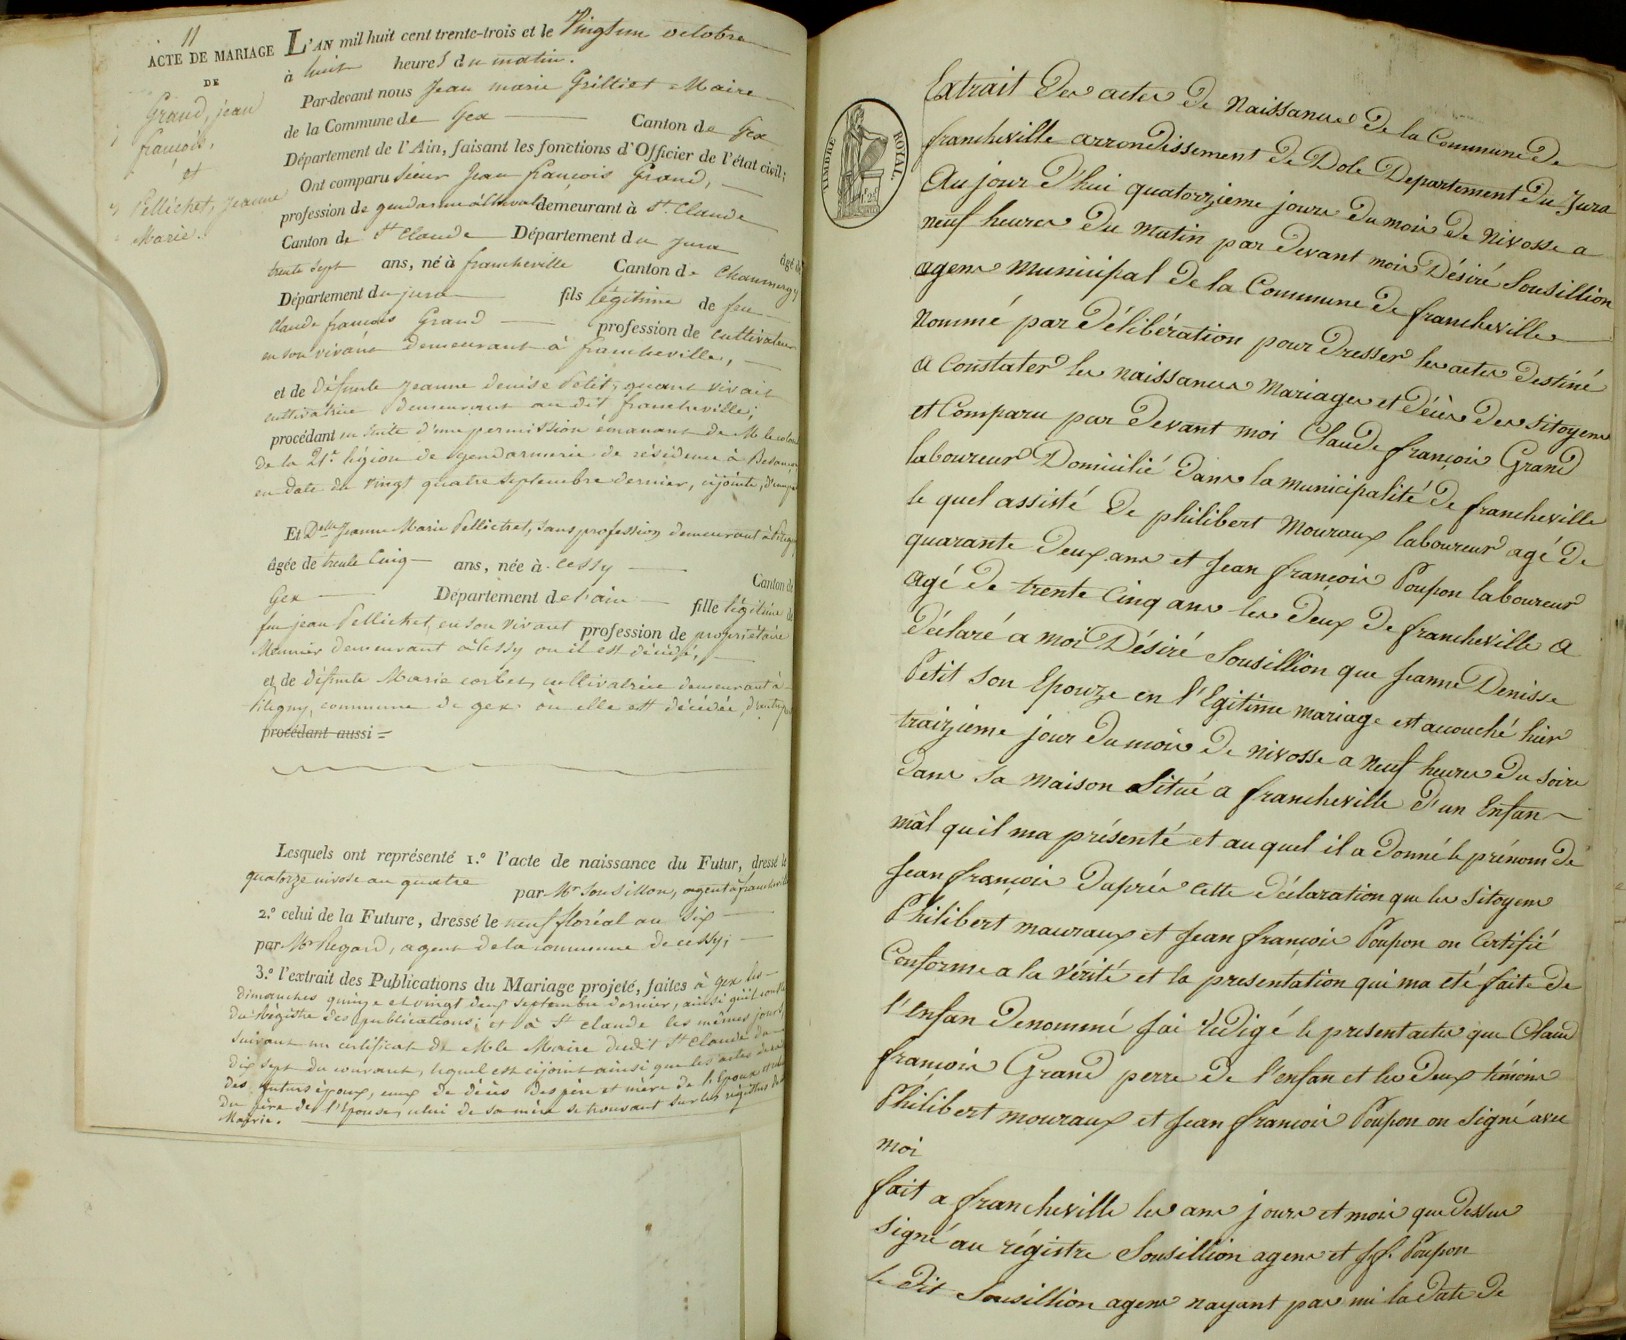 11
ACTE DE MARIAGE
DE
Grand, jean
françois,
et
Pellichet, Jeanne
Marie.
L'AN mil huit cent trente-trois et le Vingt un octobre
à huit heures du matin.
Par-devant nous Jean marie Grilliet Maire
de la Commune de Gex Canton de Gex
Département de l'Ain, faisant les fonctions d'Officier de l'état civil;
Ont comparu sieur Jean françois Grand,
profession de gendarme à cheval demeurant à St. Claude
Canton de St Claude Département du Jura âgé de
trente sept ans, né à francheville Canton de Chaumergy
Département du jura fils légitime de feu
Claude françois Grand profession de cultivateur
en son vivant demeurant à francheville,
et de Défunte Jeanne denise Petit, quant vivait
cultivatrice demeurant au dit francheville;
procédant en suite d'une permission émanant de M. le colonel
de la 21e légion de gendarmerie de résidence à Besançon
en date du Vingt quatre septembre dernier, cijointe, d'une part
Et Delle Jeanne Marie Pellichet, sans profession demeurant à
âgée de trente Cinq ans, née à Cessy Canton de
Gex Département de l'ain fille légitime de
feu jean Pellichet, en son vivant profession de propriétaire
Meunier demeurant à Cessy ou il est décédé,
et de défunte Maria corbet, cultivatrice demeurant à
Pitegny, commune de gex où elle est décédée, d'autre part
procédant aussi
Lesquels ont représenté 1.° l'acte de naissance du Futur, dressé le
quatorze nivose an quatre par Mr Sousillon, agent à francheville
2.° celui de la Future, dressé le neuf floréal an six
par Mr Regard, agent de la commune de cessy;
3.° l'extrait des Publications du Mariage projeté, faites à gex les
dimanches quinze et vingt deux septembre dernier, ainsi qu'il conste
du régistre des publications; et à St claude les mêmes jours,
suivant un certificat de M le Maire dudit St Claude du
dix sept du courant, lequel est cijoint ainsi que les actes de
des futurs époux, ceux de décès des père et mère de l'Epoux et
du père de l'Epouse, celui de sa mère se trouvant sur les régistres de
Mairie.
TIMBRE ROYAL.
Extrait Des actes De Naissances De la Commune De
francheville arrondissement De Dole Departement Du Jura
Au jour d'hui quatorzieme jours Du mois De Nivosse a
neuf heures Du Matin par Devant moi Désiré Sousillion
agens Municipal De la Commune De francheville
Nommé par Délibération pour Dresser les actes Destiné
a Constater les Naissances Mariages et Décès Des sitoyens
et Comparu par Devant moi Claude françois Grand
laboureur Domicilié Dans la municipalité De francheville
le quel assisté De philibert Mouraux laboureur agé De
quarante Deux ans et Jean françois Poupon laboureur
agé De trente cinq ans les Deux De francheville a
Déclaré a moi Désiré Sousillion que Jeanne Denisse
Petit Son Epouze en l'Egitime mariage est acouché hier
traizieme jour Du mois De Nivosse a Neuf heures Du soire
Dans sa Maison Situé a francheville D'un Enfan
mâl qu'il ma présenté et au quel il a Donné le prénom De
Jean françois Daprés cette Déclaration que les sitoyens
Philibert mauraux et Jean françois Poupon on Certifié
Conforme a la Vérité et la presentation qui ma été faite De
l'Enfan Denommé jai redigé le present actes que Claud
françois Grand perre De l'enfan et les Deux témoins
Philibert mouraux et Jean françois Poupon on Signé avec
moi
fait a francheville les ans jours et mois que Dessus
signé au régistre Sousillion agens et J.f. Poupon
le Dit Sousillion agens nayant pas mi la Date De